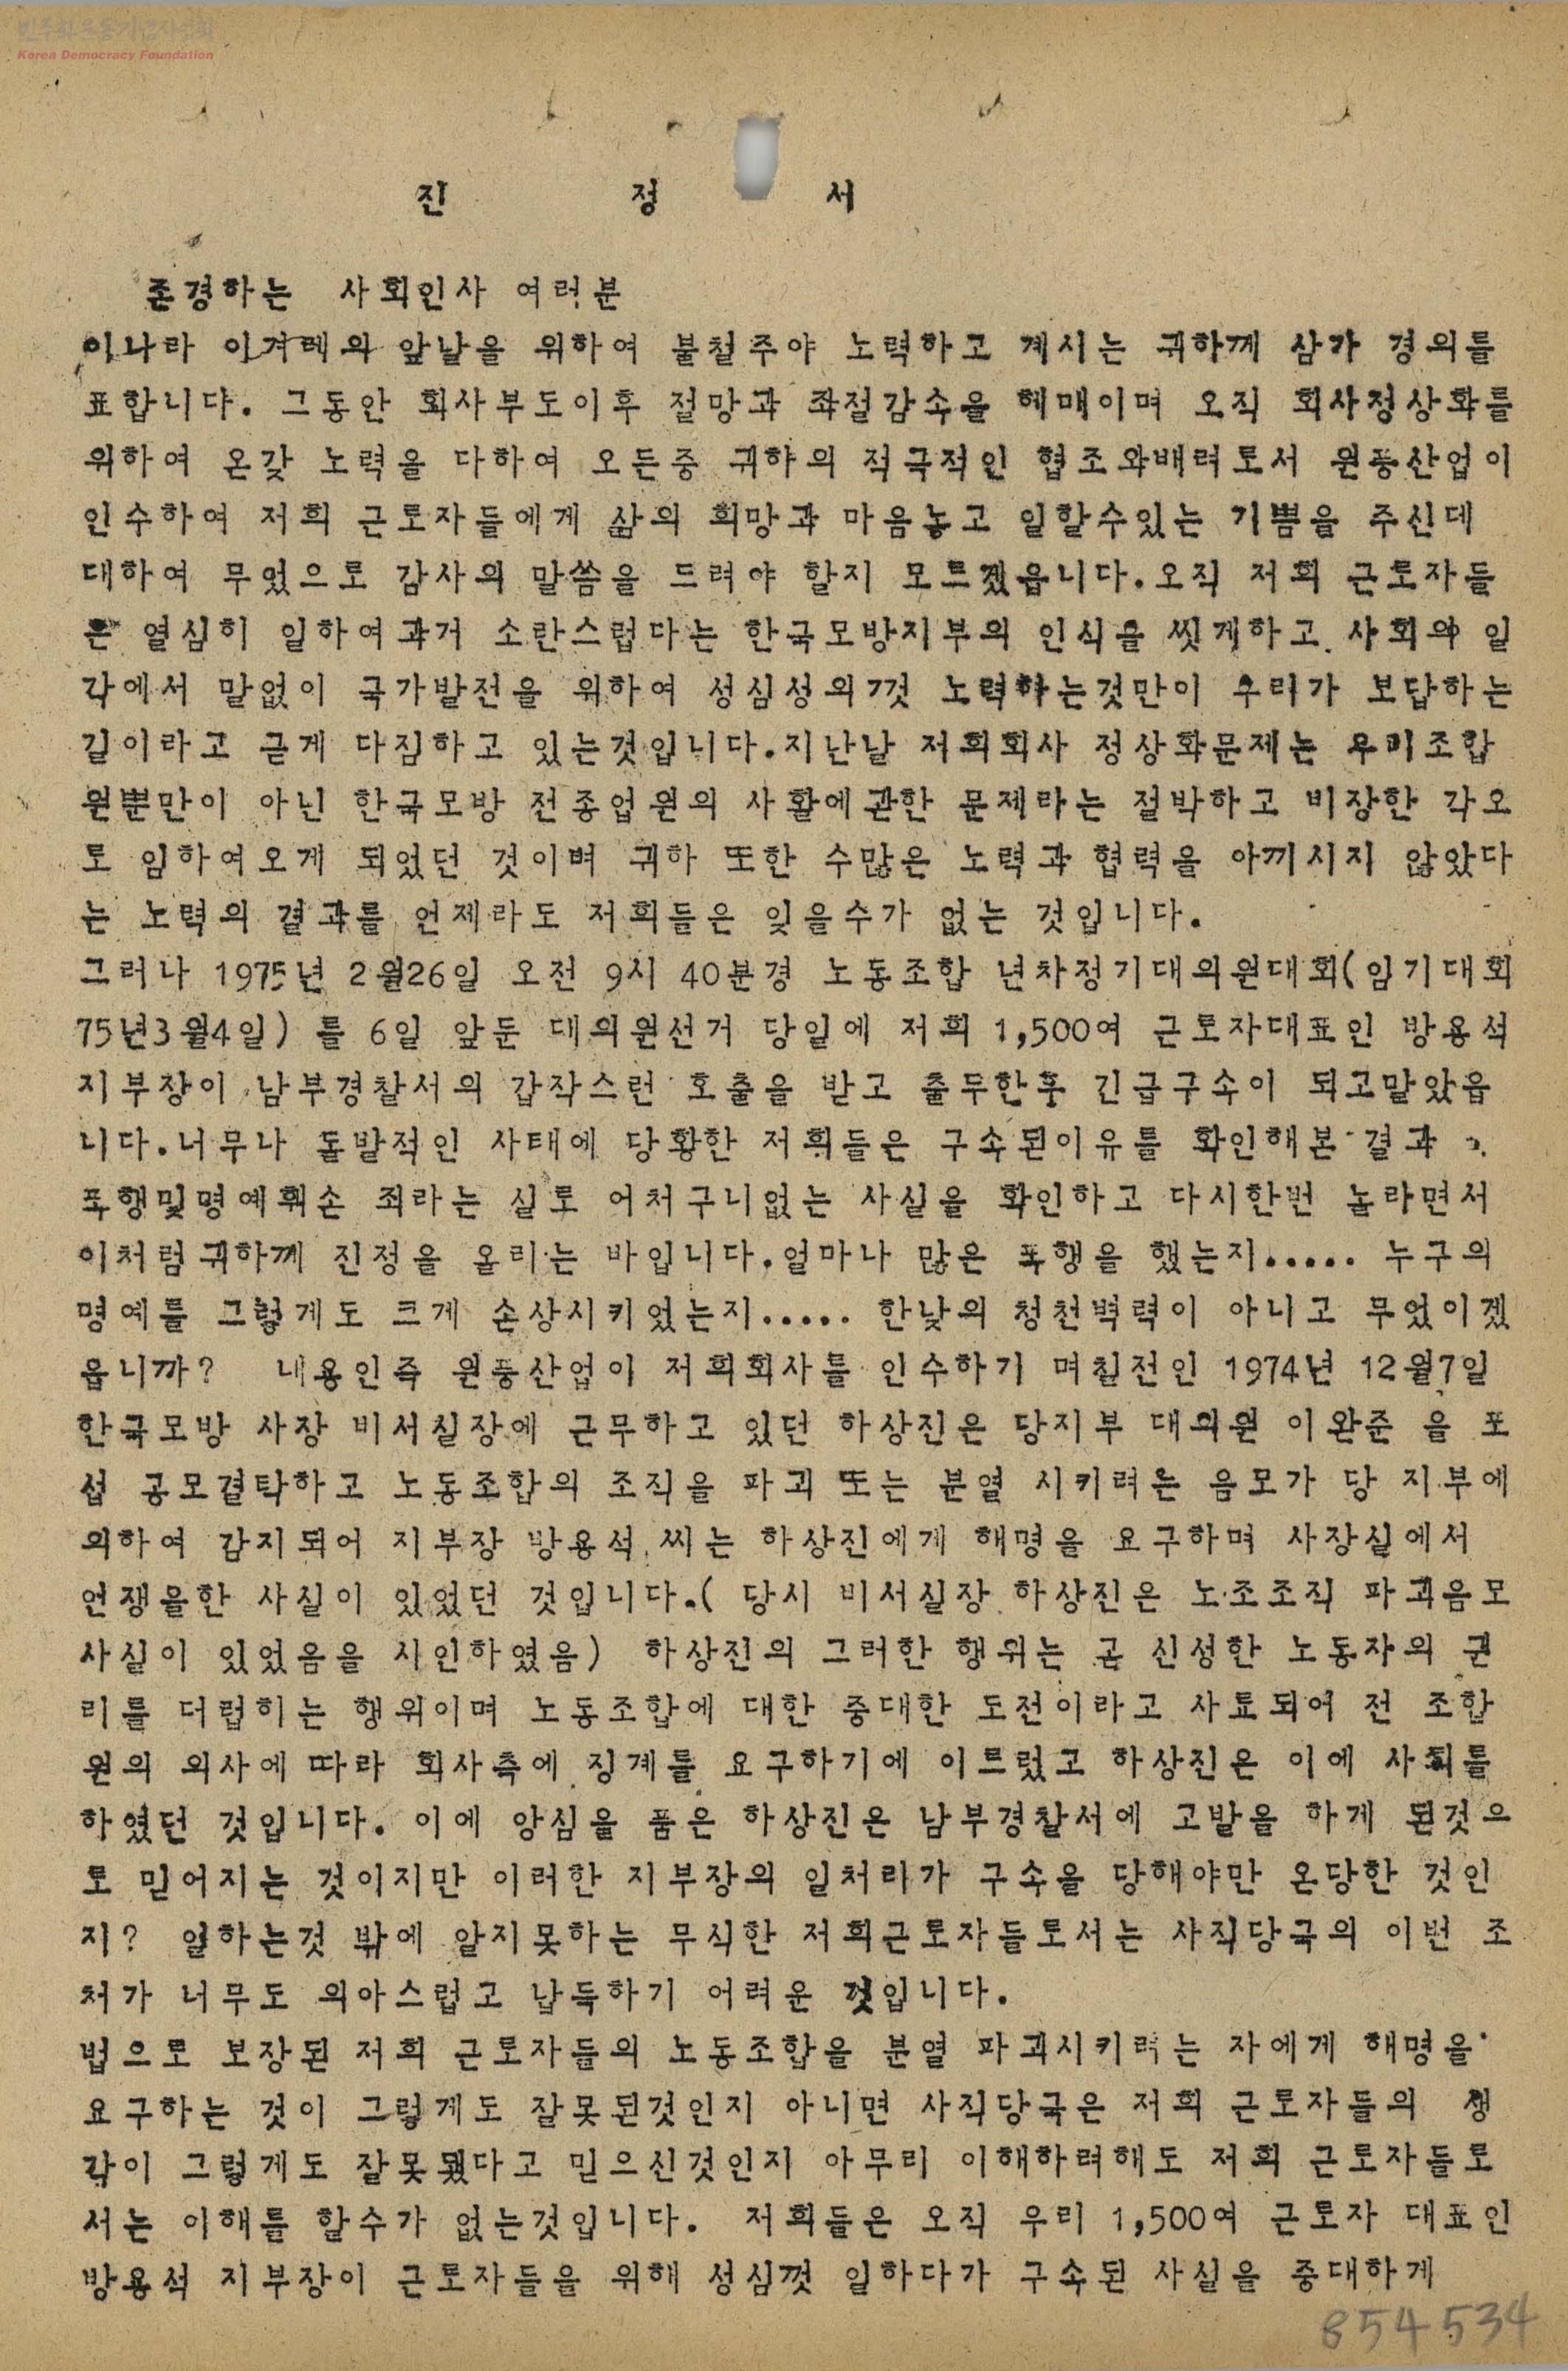 민주화운동기념사업회
Korea Democracy Foundation
진 정 서
존경하는 사회인사 여러분
이나라 이겨레의 앞날을 위하여 불철주야 노력하고 계시는 귀하께 삼가 경의를
표합니다. 그동안 회사부도이후 절망과 좌절감속을 헤매이며 오직 회사정상화를
위하여 온갖 노력을 다하여 오든중 귀하의 적극적인 협조와배려로서 원풍산업이
인수하여 저희 근로자들에게 삶의 희망과 마음놓고 일할수있는 기쁨을 주신데
대하여 무엇으로 감사의 말씀을 드려야 할지 모르겠읍니다.오직 저희 근로자들
은 열심히 일하여과거 소란스럽다는 한국모방지부의 인식을 씻게하고 사회의 일
각에서 말없이 국가발전을 위하여 성심성의껏 노력하는것만이 우리가 보답하는
길이라고 굳게 다짐하고 있는것입니다.지난날 저희회사 정상화문제는 우리조합
원뿐만이 아닌 한국모방 전종업원의 사활에관한 문제라는 절박하고 비장한 각오
로 임하여오게 되었던 것이며 귀하 또한 수많은 노력과 협력을 아끼시지 않았다
는 노력의 결과를 언제라도 저희들은 잊을수가 없는 것입니다.
그러나 1975년 2월26일 오전 9시 40분경 노동조합 년차정기대의원대회(임기대회
75년3월4일) 를 6일 앞둔 대의원선거 당일에 저희 1,500여 근로자대표인 방용석
지부장이 남부경찰서의 갑작스런 호출을 받고 출두한후 긴급구속이 되고말았읍
니다.너무나 돌발적인 사태에 당황한 저희들은 구속된이유를 확인해본 결과
폭행및명예훼손 죄라는 실로 어처구니없는 사실을 확인하고 다시한번 놀라면서
이처럼귀하께 진정을 올리는 바입니다.얼마나 많은 폭행을 했는지..... 누구의
명예를 그렇게도 크게 손상시키었는지..... 한낮의 청천벽력이 아니고 무엇이겠
읍니까? 내용인즉 원풍산업이 저희회사를 인수하기 며칠전인 1974년 12월7일
한국모방 사장 비서실장에 근무하고 있던 하상진은 당지부 대의원 이완준 을 포
섭 공모결탁하고 노동조합의 조직을 파괴 또는 분열 시키려는 음모가 당 지부에
의하여 감지되어 지부장 방용석 씨는 하상진에게 해명을 요구하며 사장실에서
언쟁을한 사실이 있었던 것입니다.( 당시 비서실장 하상진은 노조조직 파괴음모
사실이 있었음을 시인하였음) 하상진의 그러한 행위는 곧 신성한 노동자의 권
리를 더럽히는 행위이며 노동조합에 대한 중대한 도전이라고 사료되어 전 조합
원의 의사에 따라 회사측에 징계를 요구하기에 이르렀고 하상진은 이에 사퇴를
하였던 것입니다. 이에 앙심을 품은 하상진은 남부경찰서에 고발을 하게 된것으
로 믿어지는 것이지만 이러한 지부장의 일처리가 구속을 당해야만 온당한 것인
지? 일하는것 밖에 알지못하는 무식한 저희근로자들로서는 사직당국의 이번 조
처가 너무도 의아스럽고 납득하기 어려운 것입니다.
법으로 보장된 저희 근로자들의 노동조합을 분열 파괴시키려는 자에게 해명을
요구하는 것이 그렇게도 잘못된것인지 아니면 사직당국은 저희 근로자들의 생
각이 그렇게도 잘못됐다고 믿으신것인지 아무리 이해하려해도 저희 근로자들로
서는 이해를 할수가 없는것입니다. 저희들은 오직 우리 1,500여 근로자 대표인
방용석 지부장이 근로자들을 위해 성심껏 일하다가 구속된 사실을 중대하게
854534